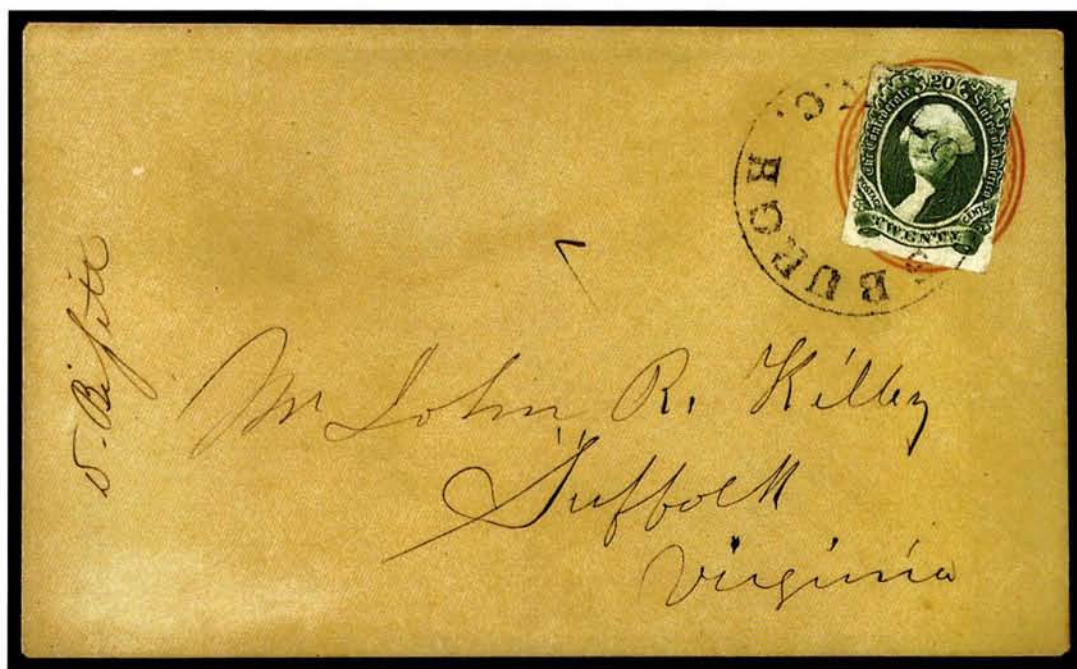 20
The Confederate States of America
TWENTY
SBURGH
.C.
Mr John R. Kilby
Suffolk
Virginia